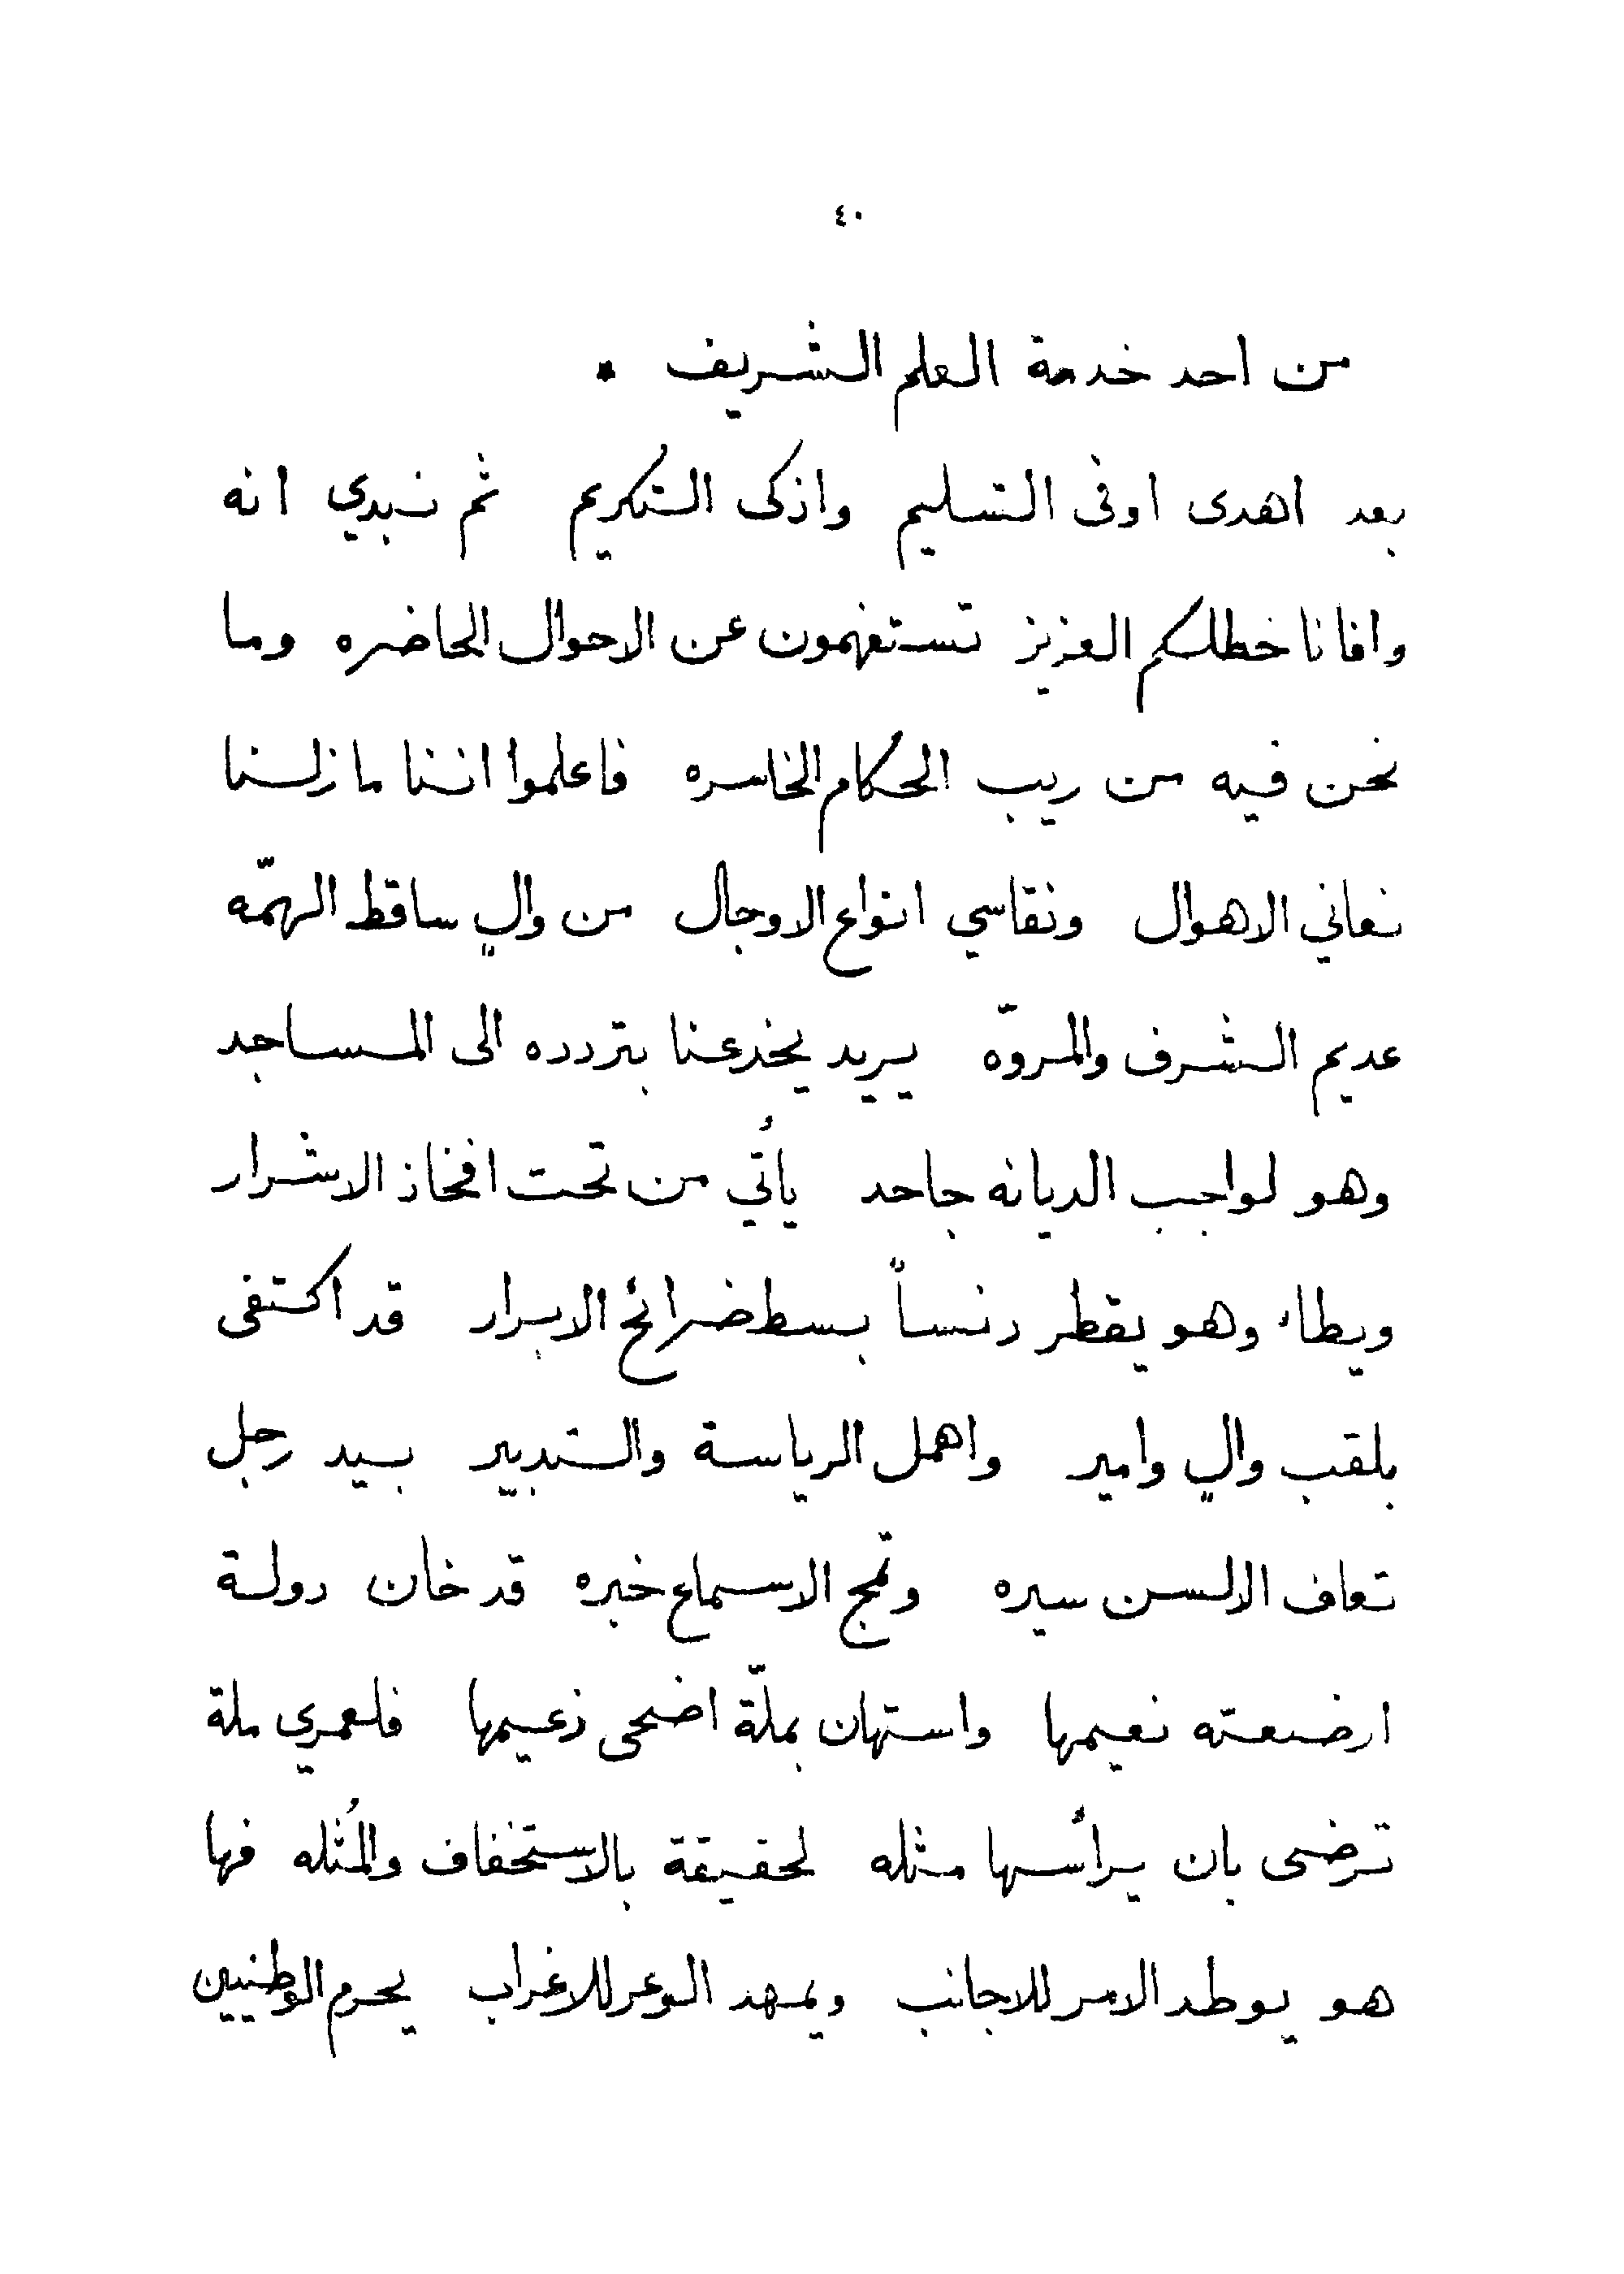 ٤٠
من احد خدمة العلم الشريف *
بعد اهدى اوفى التسليم واذكى التكريم ثم نبدي انه
وافانا خطكم العزيز تستفهمون عن الاحوال الحاضره وما
نحن فيه من ريب الحكام الخاسره فاعلموا اننا ما زلنا
نعاني الاهوال ونقاسي انواع الاوجال من والٍ ساقط الهمّه
عديم الشرف والمروّه يريد يخدعنا بتردده الى المساجد
وهو لواجب الديانه جاحد يأتي من تحت افخاذ الاشرار
ويطاء وهو يقطر دنساً بسط ضرائح الابرار قد اكتفى
بلقب والٍ وامير واهمل الرياسة والتدبير بيد رجل
تعاف الالسن سيره وتمج الاسماع خبره قد خان دولة
ارضعته نعيمها واستهان بملّة اضحى زعيمها فلعمري ملة
ترضى بان يرأسها مثله لحقيقة بالاستخفاف والمُثله فها
هو يوطد الامر للاجانب ويمهد الوعر للاغراب يحرم الوطنيين